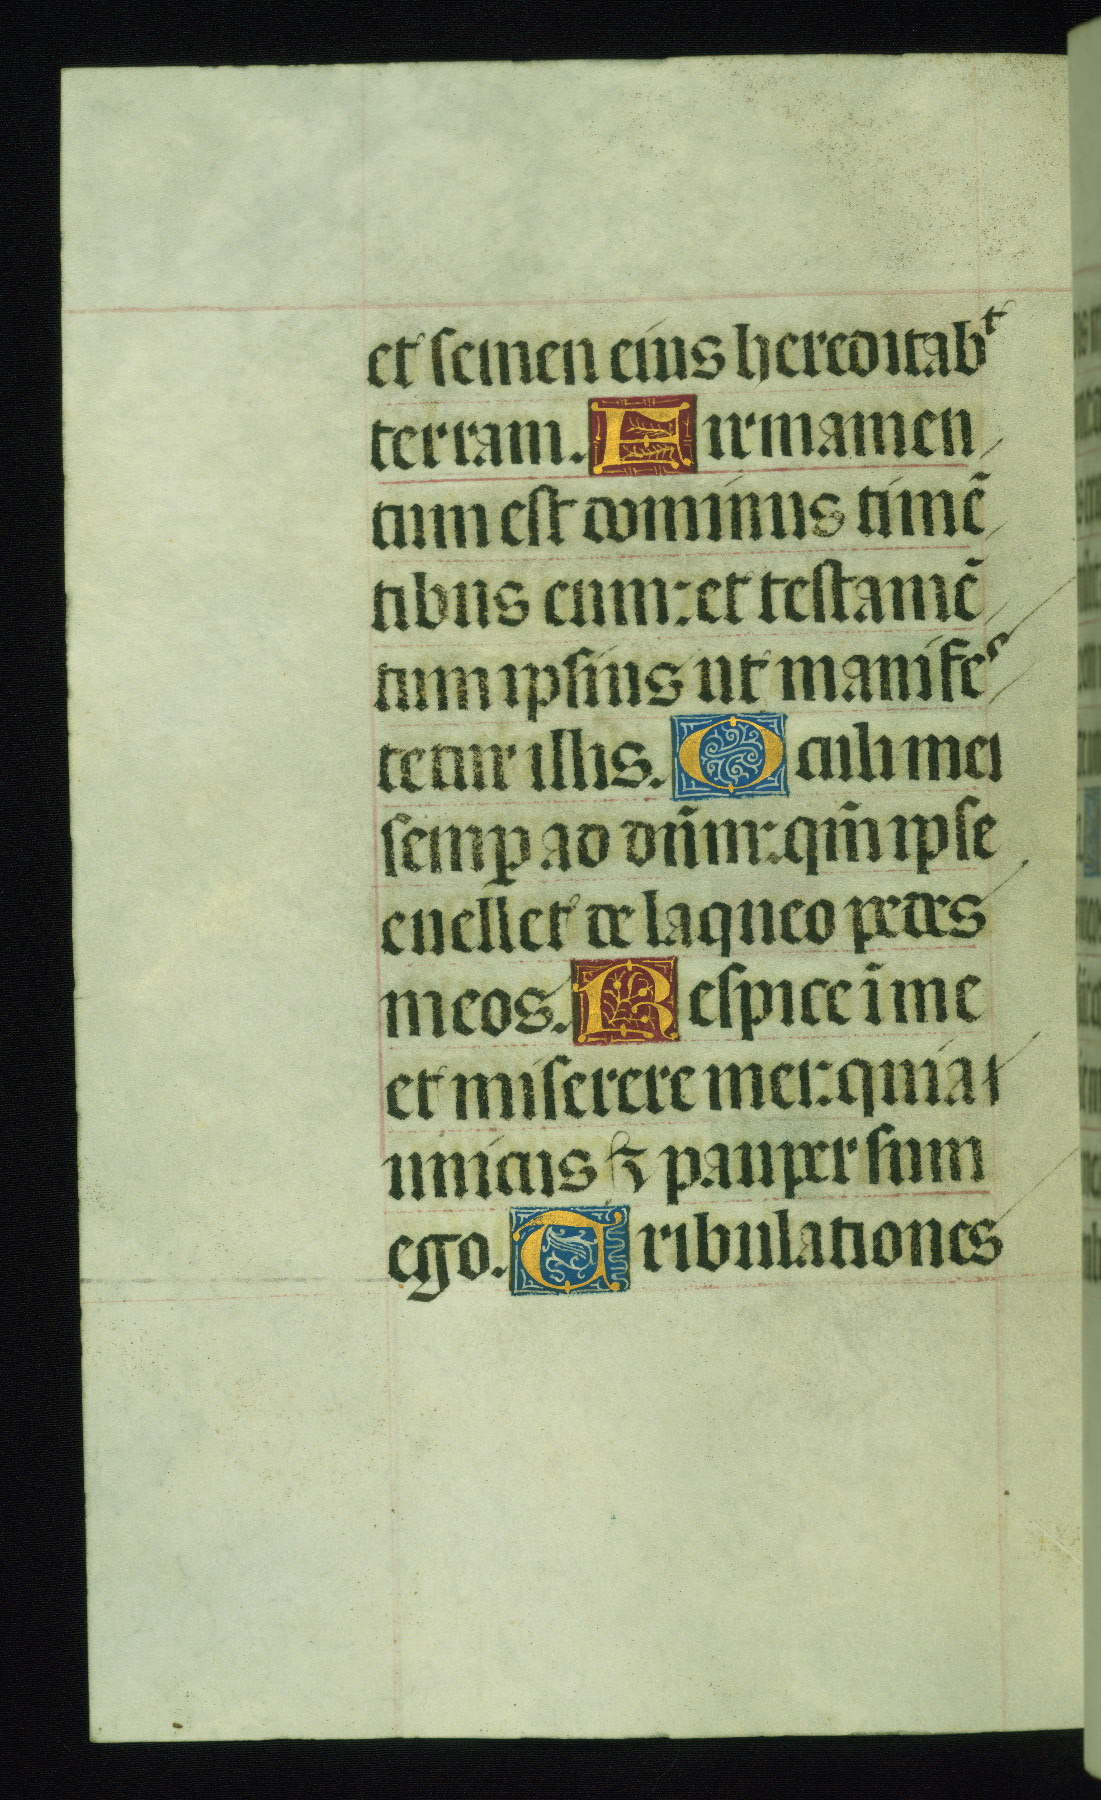 et semen eius hereditabᵗ
terram. Firmamen
tum est dominus timē
tibus eum: et testamē
tum ipsius ut manifeˢ
tetur illis. Oculi mei
semꝑ ad dn̄m: qm̄ ipse
euellet de laqueo pedes
meos. Respice ī me
et miserere mei: quia
unicus ⁊ pauper sum
ego. Tribulationes